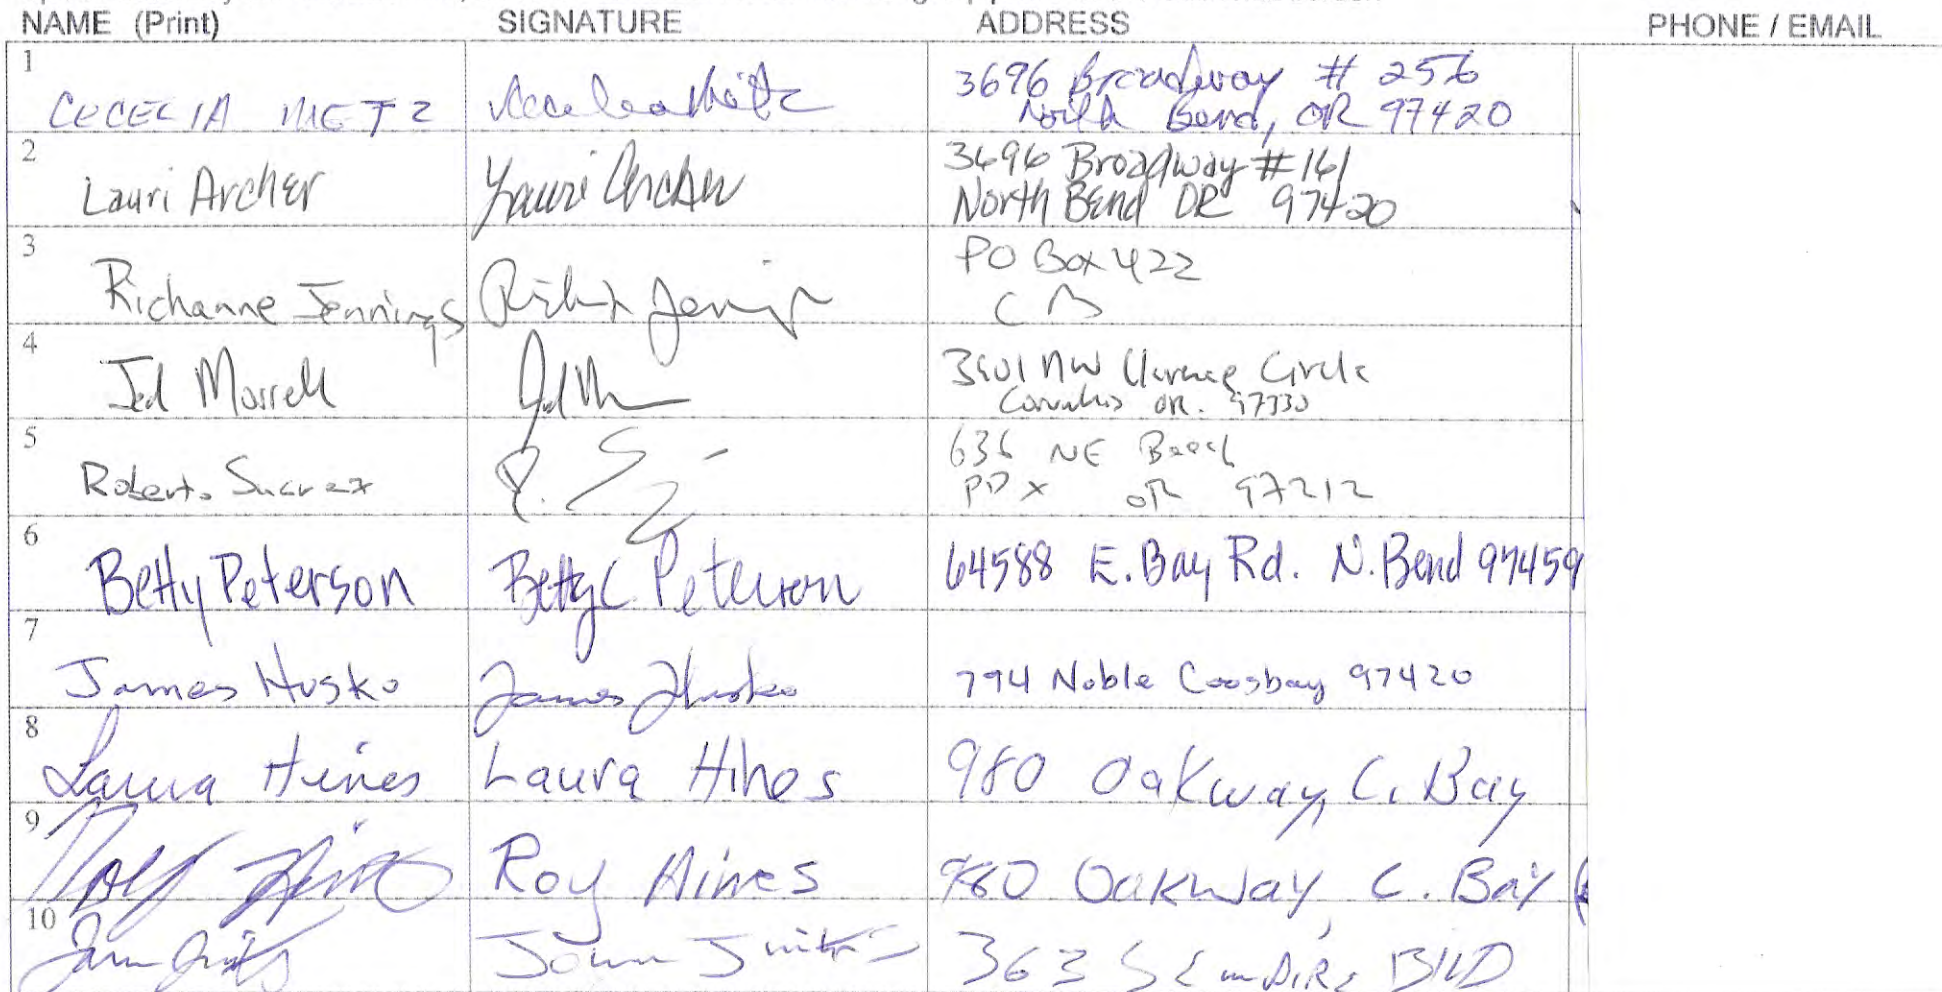 NAME (Print) SIGNATURE ADDRESS PHONE / EMAIL
1
CECELIA METZ
3696 Broadway # 256
North Bend, OR 97420
2
Lauri Archer Lauri Archer
3696 Broadway #161
North Bend OR 97420
3
Richanne Jennings
PO Box 422
CB
4
Jed Morrell
NW Circle
Corvallis OR. 97330
5
Roberto Suarez
636 NE Beech
PDX OR 97212
6
Betty Peterson Betty C Peterson 64588 E. Bay Rd. N. Bend 97459
7
James Husko James Husko 794 Noble Coosbay 97420
8
Laura Hines Laura Hines 980 Oakway, C. Bay
9
Roy Hines Roy Hines 980 Oakway, C. Bay
10
363 S Empire Blvd